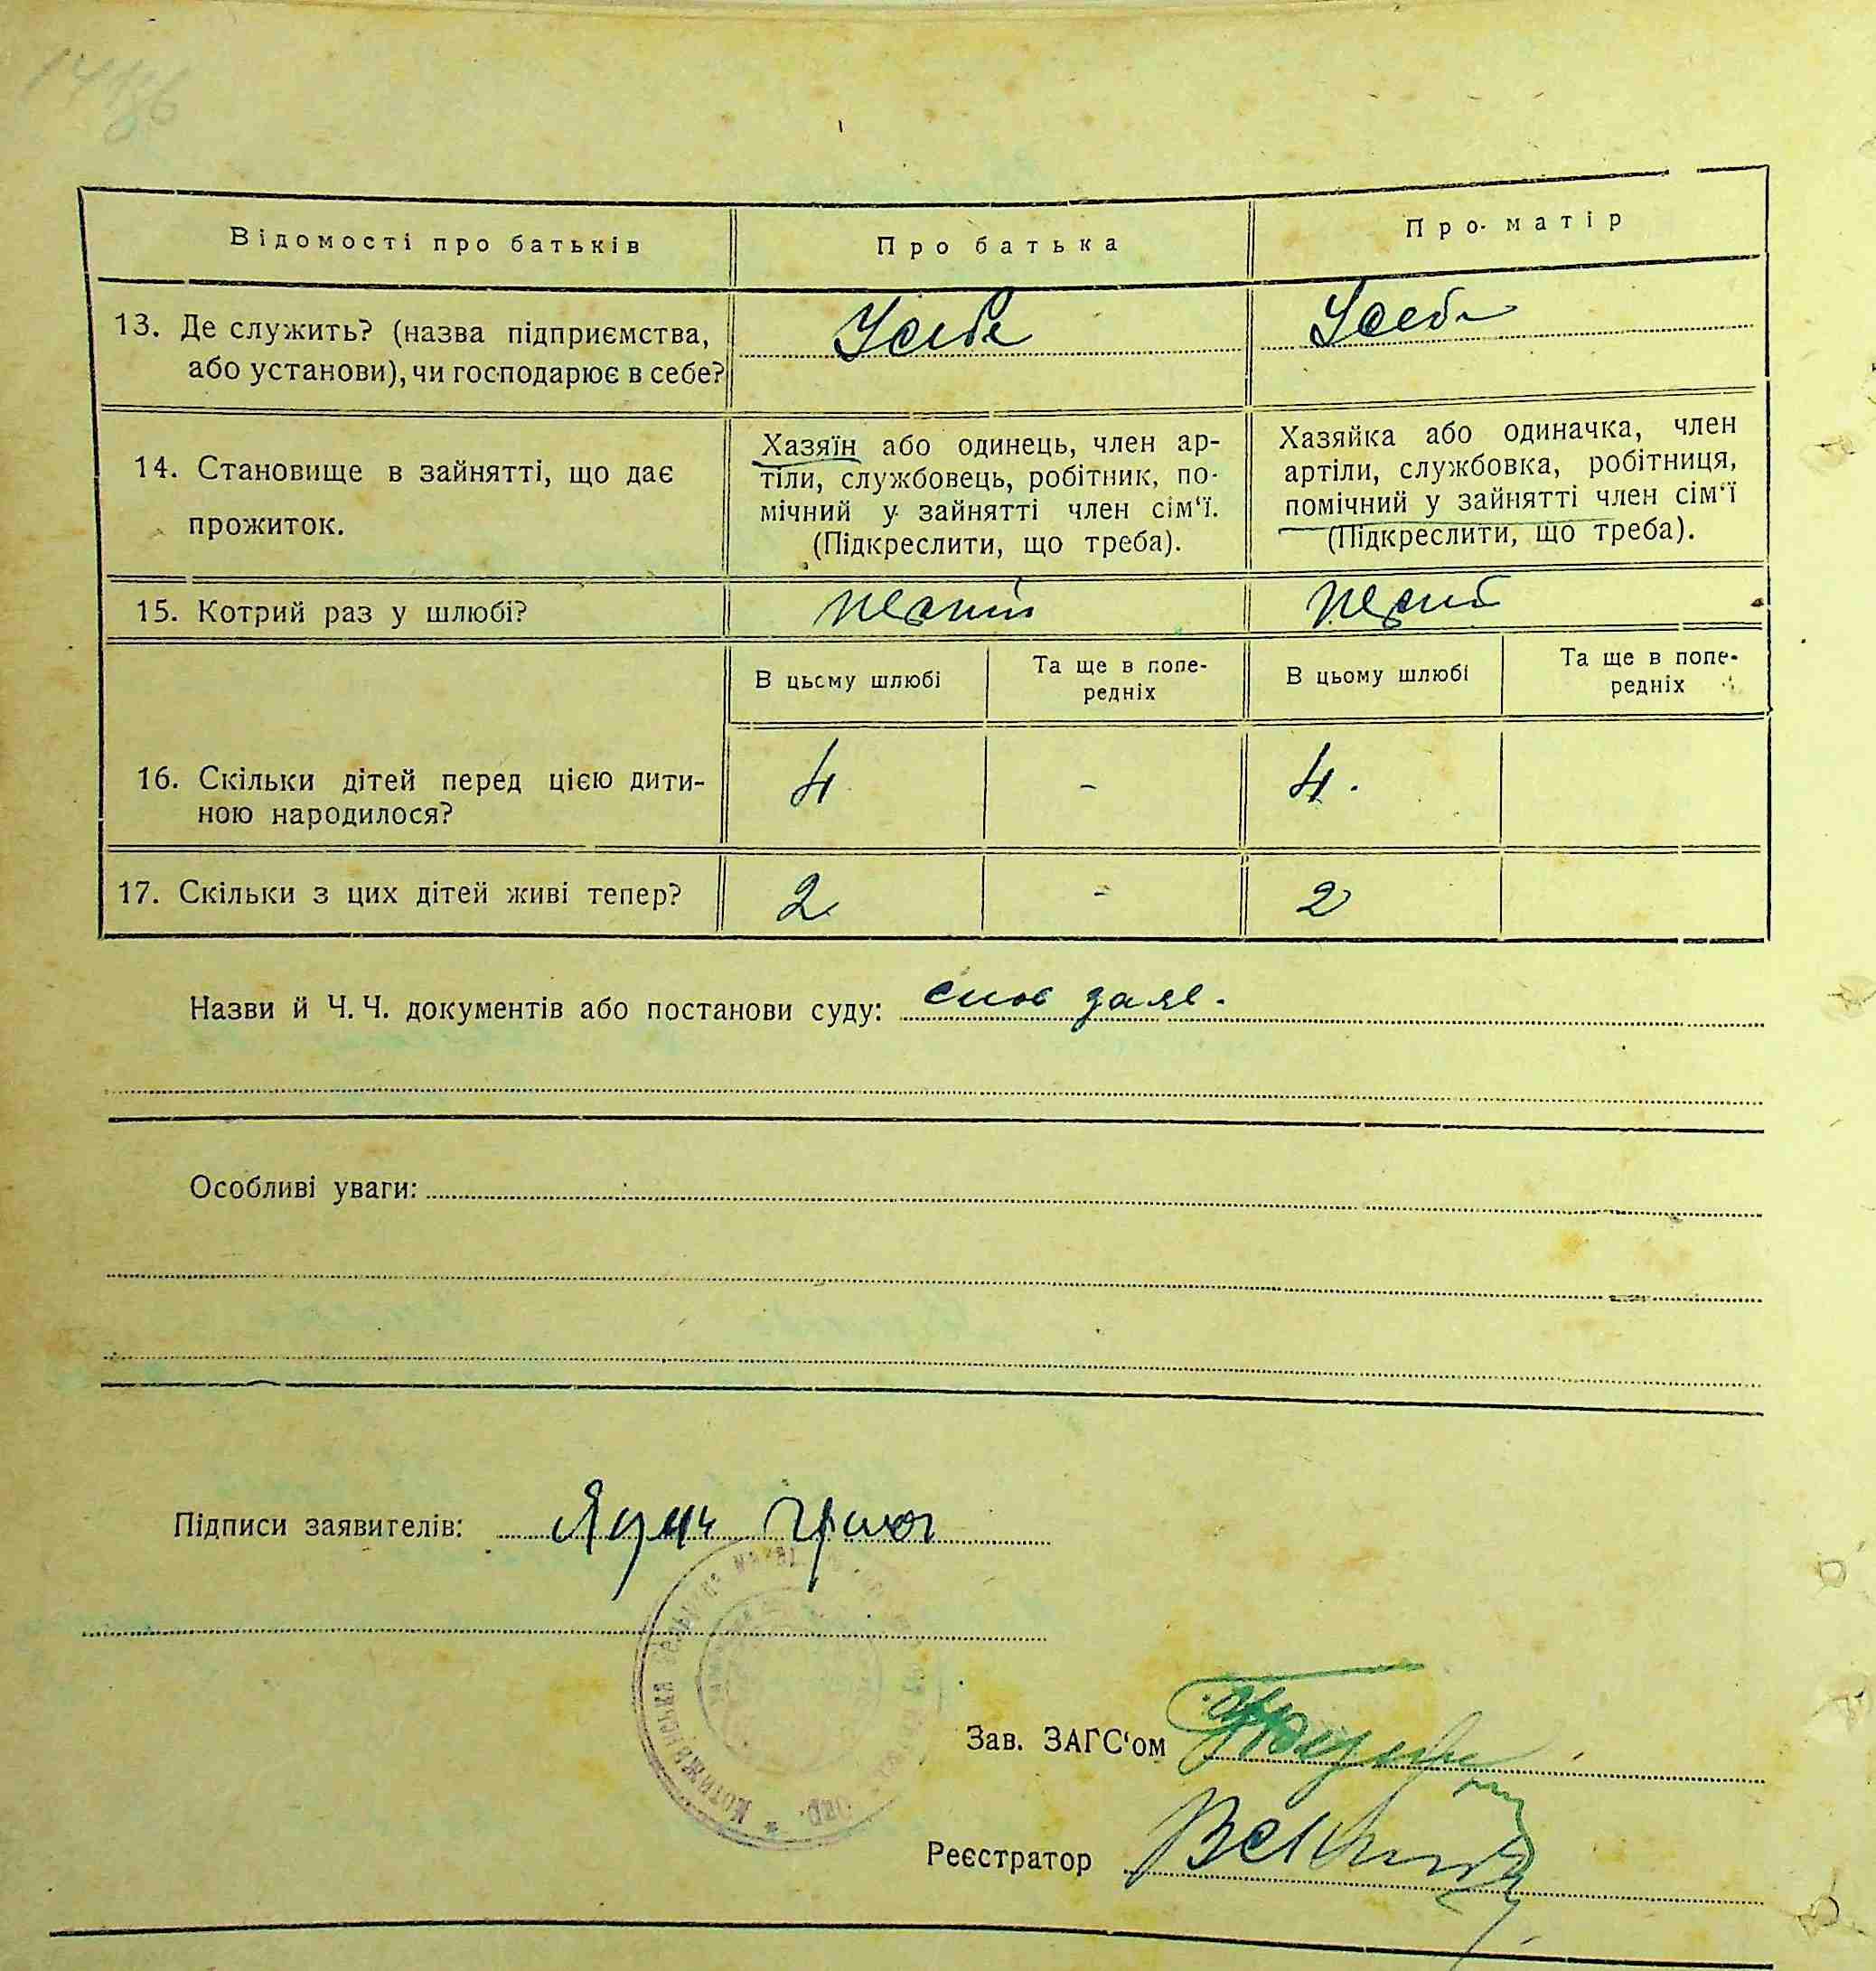 Відомості про батьків
Про батька
Про матір
13. Де служить? (назва підприємства,
або установи), чи господарює в себе?
У себе
У себе
14. Становище в зайнятті, що дає
прожиток.
Хазяїн або одинець, член ар-
тіли, службовець, робітник, по-
мічний у зайнятті член сім‘ї.
(Підкреслити, що треба).
Хазяйка або одиначка, член
артіли, службовка, робітниця,
помічний у зайнятті член сім‘ї
(Підкреслити, що треба).
15. Котрий раз у шлюбі?
В цьому шлюбі
Та ще в попе-
редніх
В цьому шлюбі
Та ще в попе-
редніх
16. Скільки дітей перед цією дити-
ною народилося?
4
-
4.
17. Скільки з цих дітей живі тепер?
2
-
2
Назви й Ч. Ч. документів або постанови суду:
Особливі уваги:
Підписи заявителів:
Зав. ЗАГС‘ом
Реєстратор